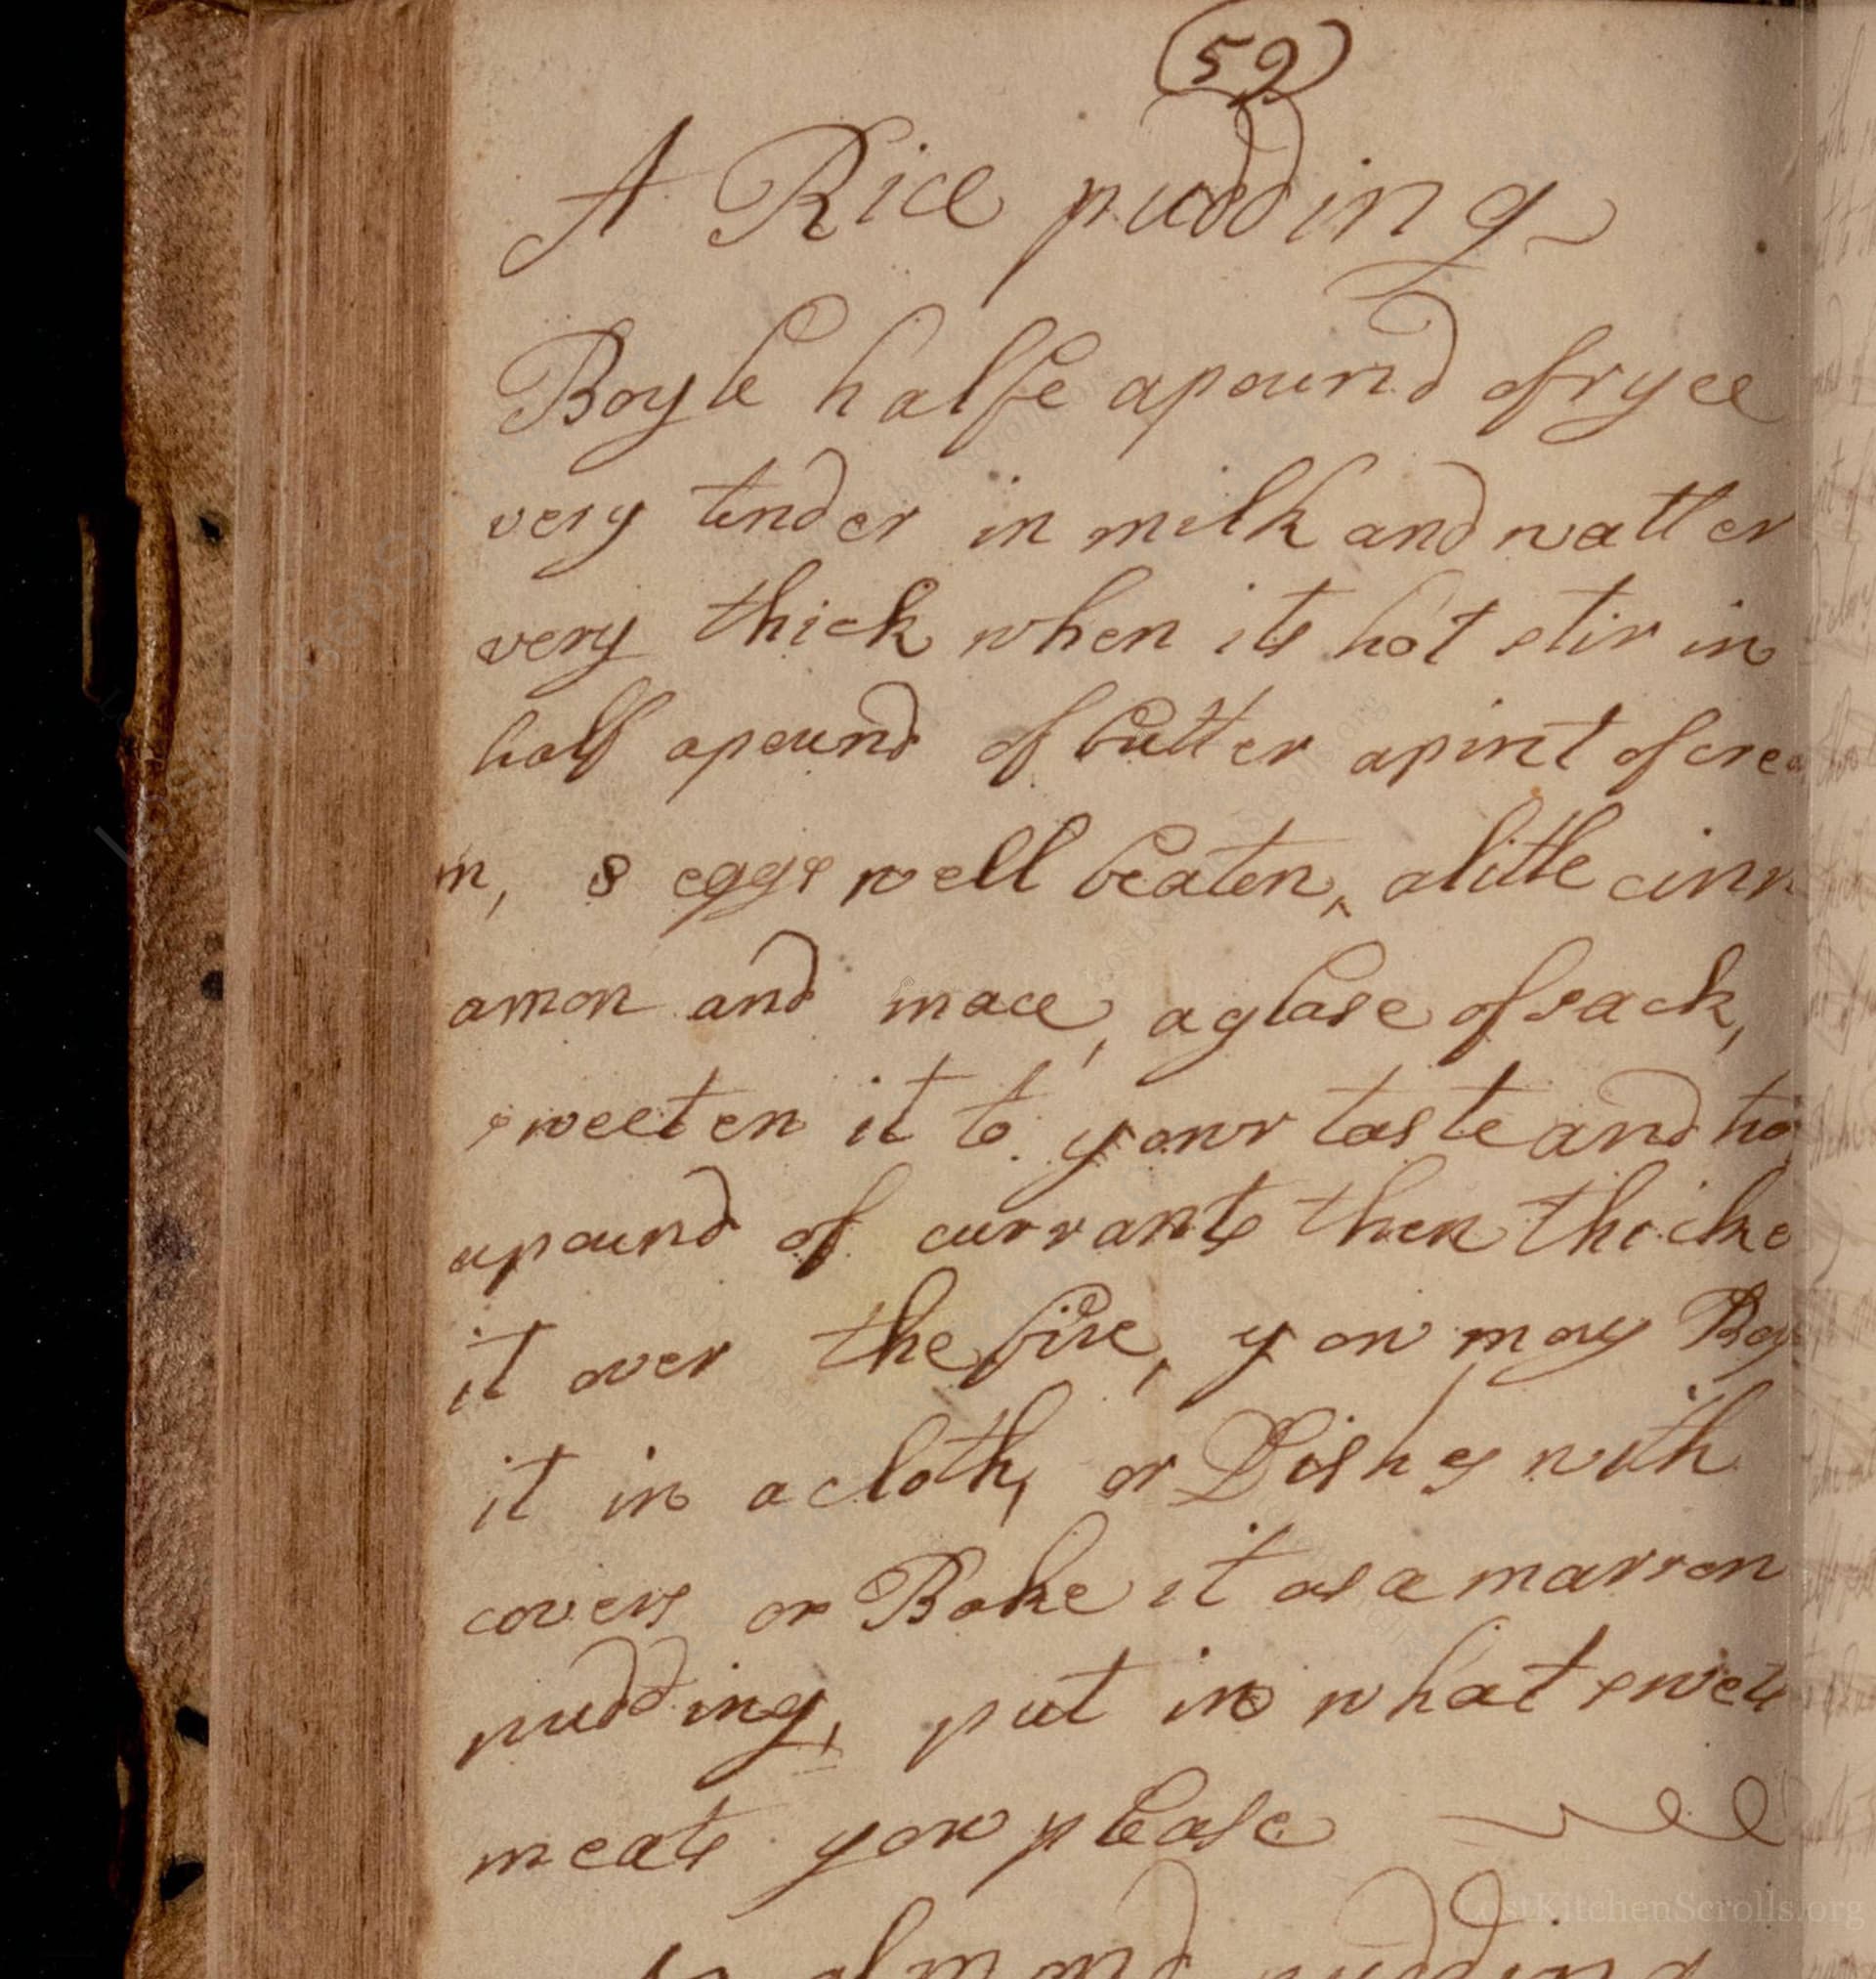 59
A Rice pudding
Boyle halfe apound of ryce
very tender in milk and watter
very thick when its hot stir in
half apound of butter apint of crea
m, 8 eggs well beaten, alitle cinn
amon and mace, aglase of sack,
sweeten it to your taste and
apound of currants then thicke
it over the fire, you may Boy
it in acloth, or Dishes with
covers or Bake it as a marrow
pudding, put in what sweet
meats you please
almond pudding
LostKitchenScrolls.org